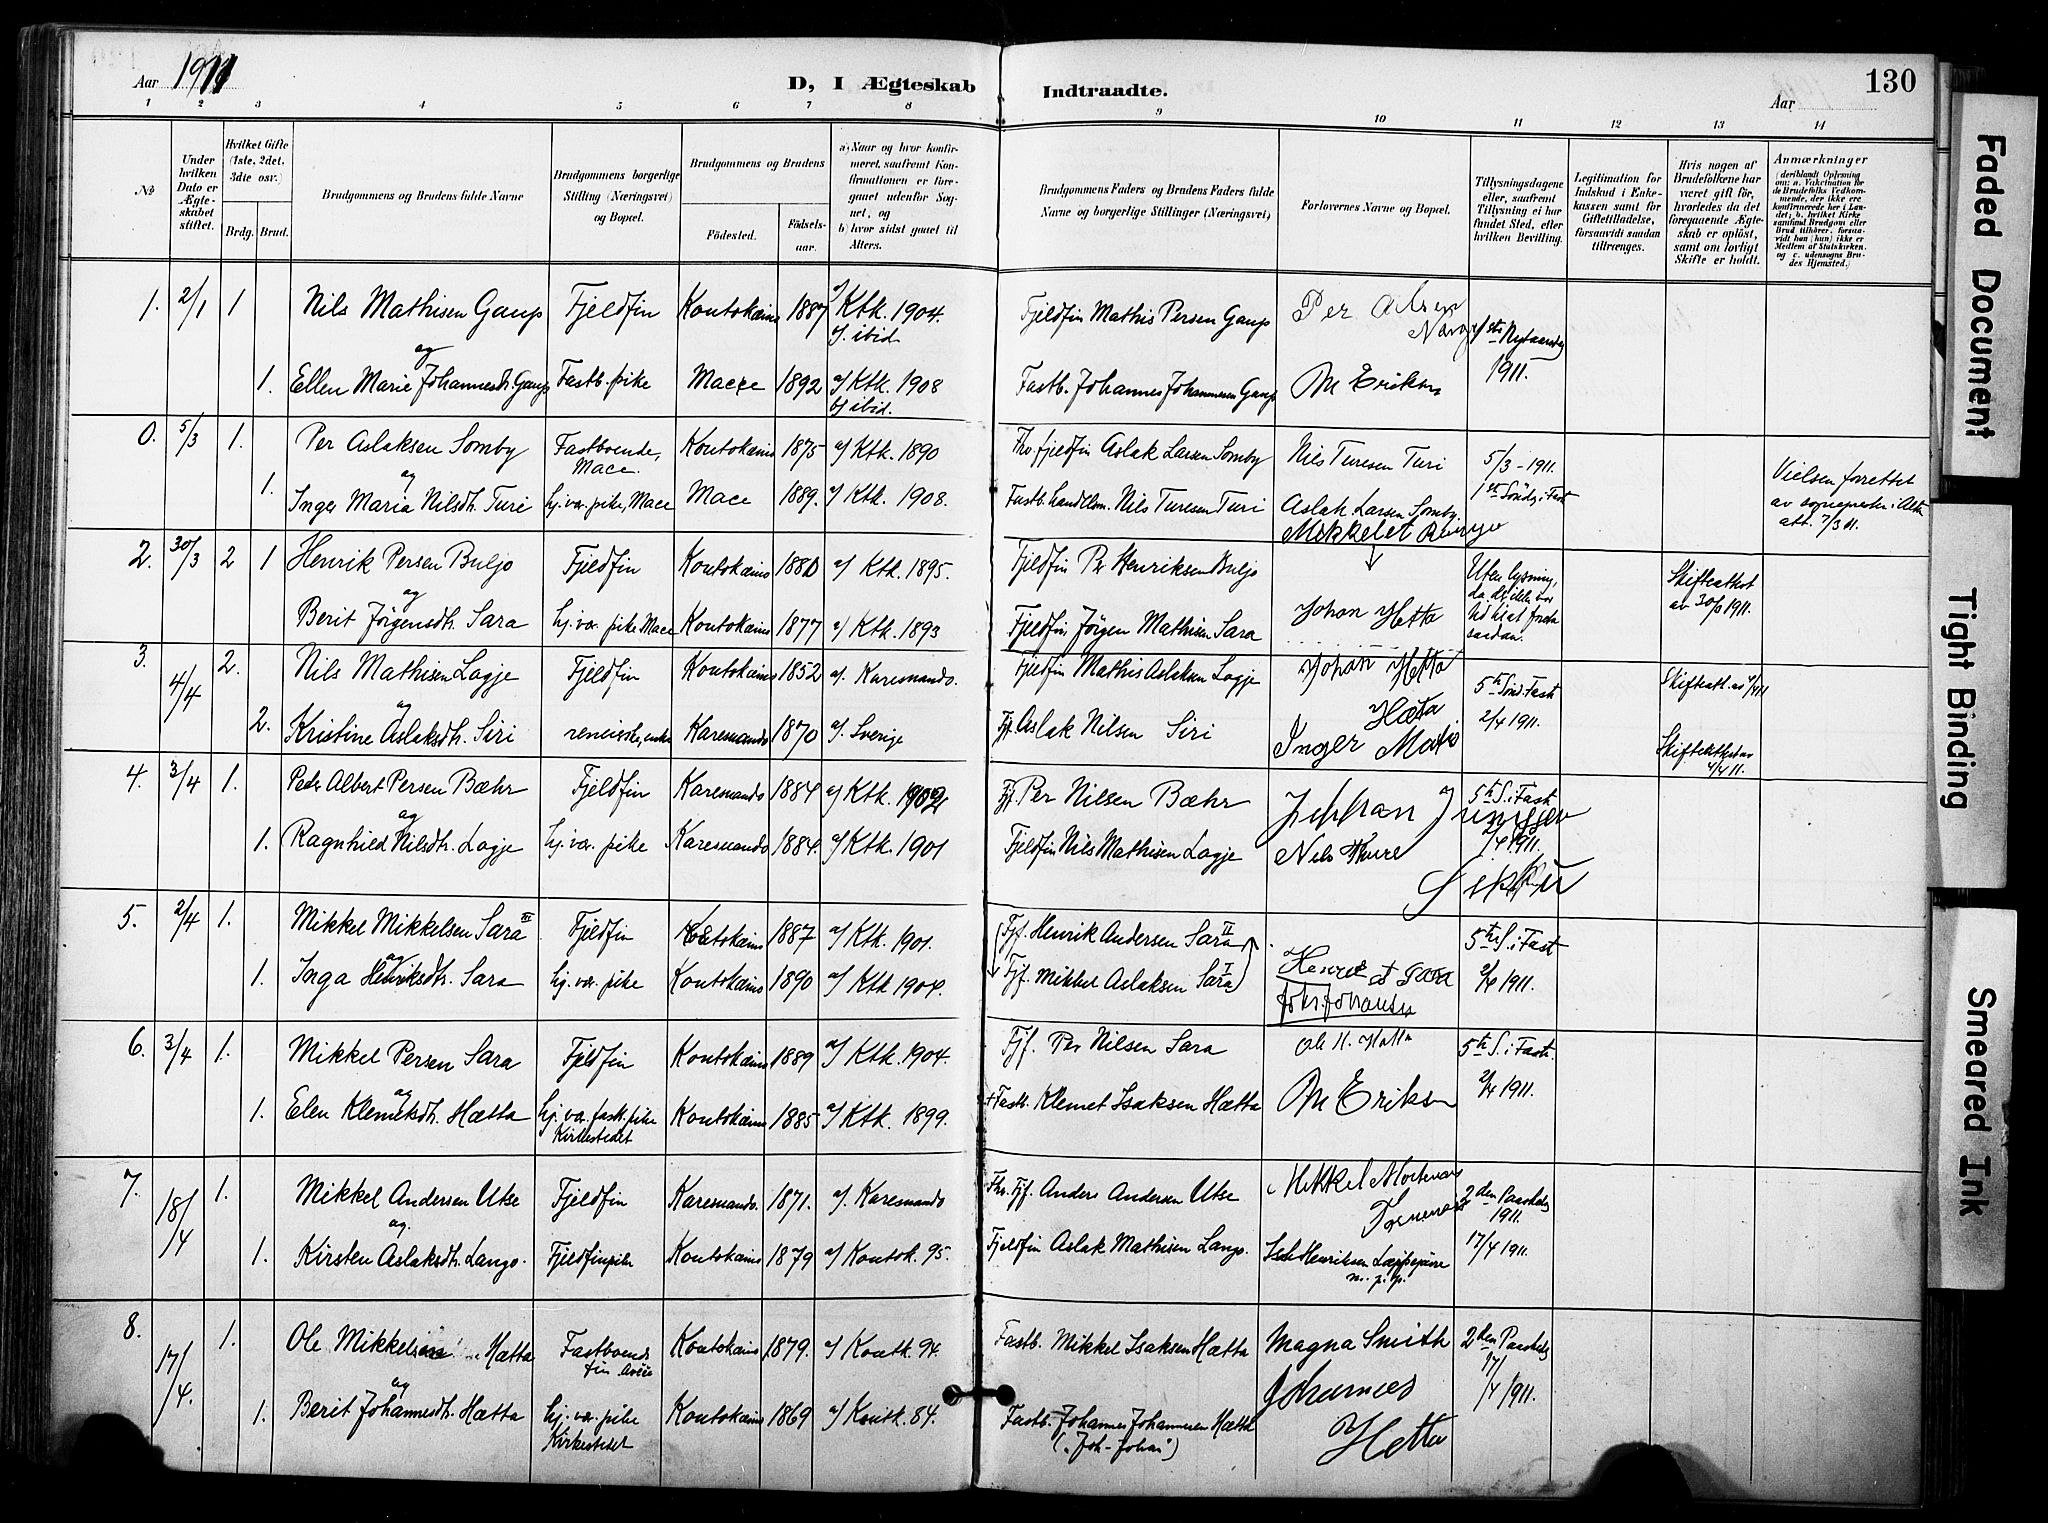 Aar 1911
D, I Ægteskab Indtraadte.
Aar
130
1 2 3 4 5 6 7 8 9 10 11 12 13 14
No
Under hvilken Dato er Ægteskabet stiftet.
Hvilket Gifte (1ste, 2det, 3die osv.)
Brdg. Brud.
Brudgommens og Brudens fulde Navne
Brudgommens borgerlige Stilling (Næringsvei) og Bopæl.
Brudgommens og Brudens
Fødested.
Fødselsaar.
a) Naar og hvor konfirmeret, saafremt Konfirmationen er foregaaet udenfor Sognet, og
b) hvor sidst gaaet til Alters.
Brudgommens Faders og Brudens Faders fulde Navne og borgerlige Stillinger (Næringsvei)
Forlovernes Navne og Bopæl.
Tillysningsdagene eller, saafremt Tillysning ei har fundet Sted, efter hvilken Bevilling.
Legitimation for Indskud i Enkekassen samt for Giftetilladelse, forsaavidt saadan tiltrænges.
Hvis nogen af Brudefolkene har været gift før, hvorledes da det foregaaende Ægteskab er opløst, samt om lovligt Skifte er holdt.
Anmærkninger (deriblandt Oplysning om: a. Vakcination for de Brudefolks Vedkommende, der ikke ere konfirmerede her i Landet; b. hvilket Kirkesamfund Brudgom eller Brud tilhører, forsaavidt han (hun) ikke er Medlem af Statskirken, og c. udensogns Brudes Hjemsted.)
1. 2/1 1 Nils Mathisen Gaup Fjeldfin Koutokeino 1887 a) Ktk. 1904. Fjeldfin Mathis Persen Gaup Per Olsen
b) ibid. 1ste Nytaarsdag
og
1. Ellen Marie Johannesdtr. Gaup Fastb. pike Macee 1892 a) Ktk. 1908 Fastb. Johannes Johannesen Gaup M Eriksen 1911.
b) ibid.
0. 5/3 1. Per Aslaksen Somby Fastboende, Koutokeino 1875 a) Ktk. 1890 Fhv. fjeldfin Aslak Larsen Somby Nils Turesen Turi 5/3-1911.
og Mace.
1. Inger Maria Nilsdtr. Turi hj. vær. pike, Mace Mace 1889. a) Ktk. 1908. Fastb. handelsm. Nils Turesen Turi Aslak Larsen Somby. 1ste Sönd. i Fast
Vielsen forrettet
av sogneprester i Alta
att. 7/3 11.
2. 30/3 2 1 Henrik Persen Buljo Fjeldfin Koutokeino 1880 a) Ktk. 1895. Fjeldfin Per Henriksen Buljo Uten lysning, Skifteattest
og da der ikke var av 30/3 1911.
Berit Jørgensdtr. Sara hj. vær. pike Mace Koutokeino 1877 a) Ktk. 1893 Fjeldfin Jørgen Mathisen Sara Johan Hetta tid til at foreta
saadan.
3. 4/4 2. Nils Mathisen Logje Fjeldfin Koutokeino 1852 a). Karesuando. Fjeldfin Mathis Aslaksen Logje Johan Hetta 5te Sönd. Fast Skifteatt. av 4/4 11
og Hætta 2/4 1911.
2. Kristine Aslaksdtr. Siri reneierske, enke Karesuando 1870 a). Sverige Fjf. Aslak Nilsen Siri Inger Skifteattest av
4/4 11.
4. 3/4 1. Peder Albert Persen Bæhr Fjeldfin Karesuando 1884 a) Ktk. 1902 Fjf. Per Nilsen Bæhr 5te S. i Fast
og 2/4 1911.
1. Ragnhild Nilsdtr. Logje hj. vær. pike Karesuando 1884. a) Ktk. 1901 Fjeldfin Nils Mathisen Logje Nils
5. 2/4 1. Mikkel Mikkelsen Sara III Fjeldfin Koutokeino 1887 a) Ktk. 1901. Fjf. Henrik Andersen Sara II 5te S. i Fast
og
1. Inga Henriksdtr. Sara hj. vær. pike Koutokeino 1890 a) Ktk. 1904. Fjf. Mikkel Aslaksen Sara I 2/4 1911.
Joh. Johansen
6. 3/4 1. Mikkel Persen Sara Fjeldfin Koutokeino 1889 a) Ktk. 1904. Fjf. Per Nilsen Sara Ole H. Hætta 5te S. i Fast.
og 2/4 1911.
1. Elen Klemetsdtr. Hætta hj. vær. fastb. pike Koutokeino 1885 a) Ktk. 1899. + Fastb. Klemet Isaksen Hætta M Eriksen
Kirkestedet
7. 18/4 1. Mikkel Andersen Utse Fjeldfin Karesuando. 1871. a). Karesuando Fhv. Fjf. Anders Andersen Utse Mikkel 2den Paaskedag
og 1911.
1. Kirsten Aslaksdtr. Lango. Fjeldfinpike Koutokeino 1879 a) Koutok. 95. Fjeldfin Aslak Mathisen Lango. Isak Henriksen 17/4 1911.
m. p. p.
8. 17/4 1. Ole Mikkelsen Hætta Fastboende Koutokeino 1879. a) Koutk. 94. Fastb. Mikkel Isaksen Hætta Magna Smith 2den Paaskedag
fin 17/4 1911.
og
1. Berit Johannesdtr. Hætta hj. vær. pike Koutokeino 1869 a) Koutk. 84. Fastb. Johannes Johannesen Hætta Johannes
Kirkestedet („Joh-Johan") Hetta
Faded Document
Tight Binding
Smeared Ink